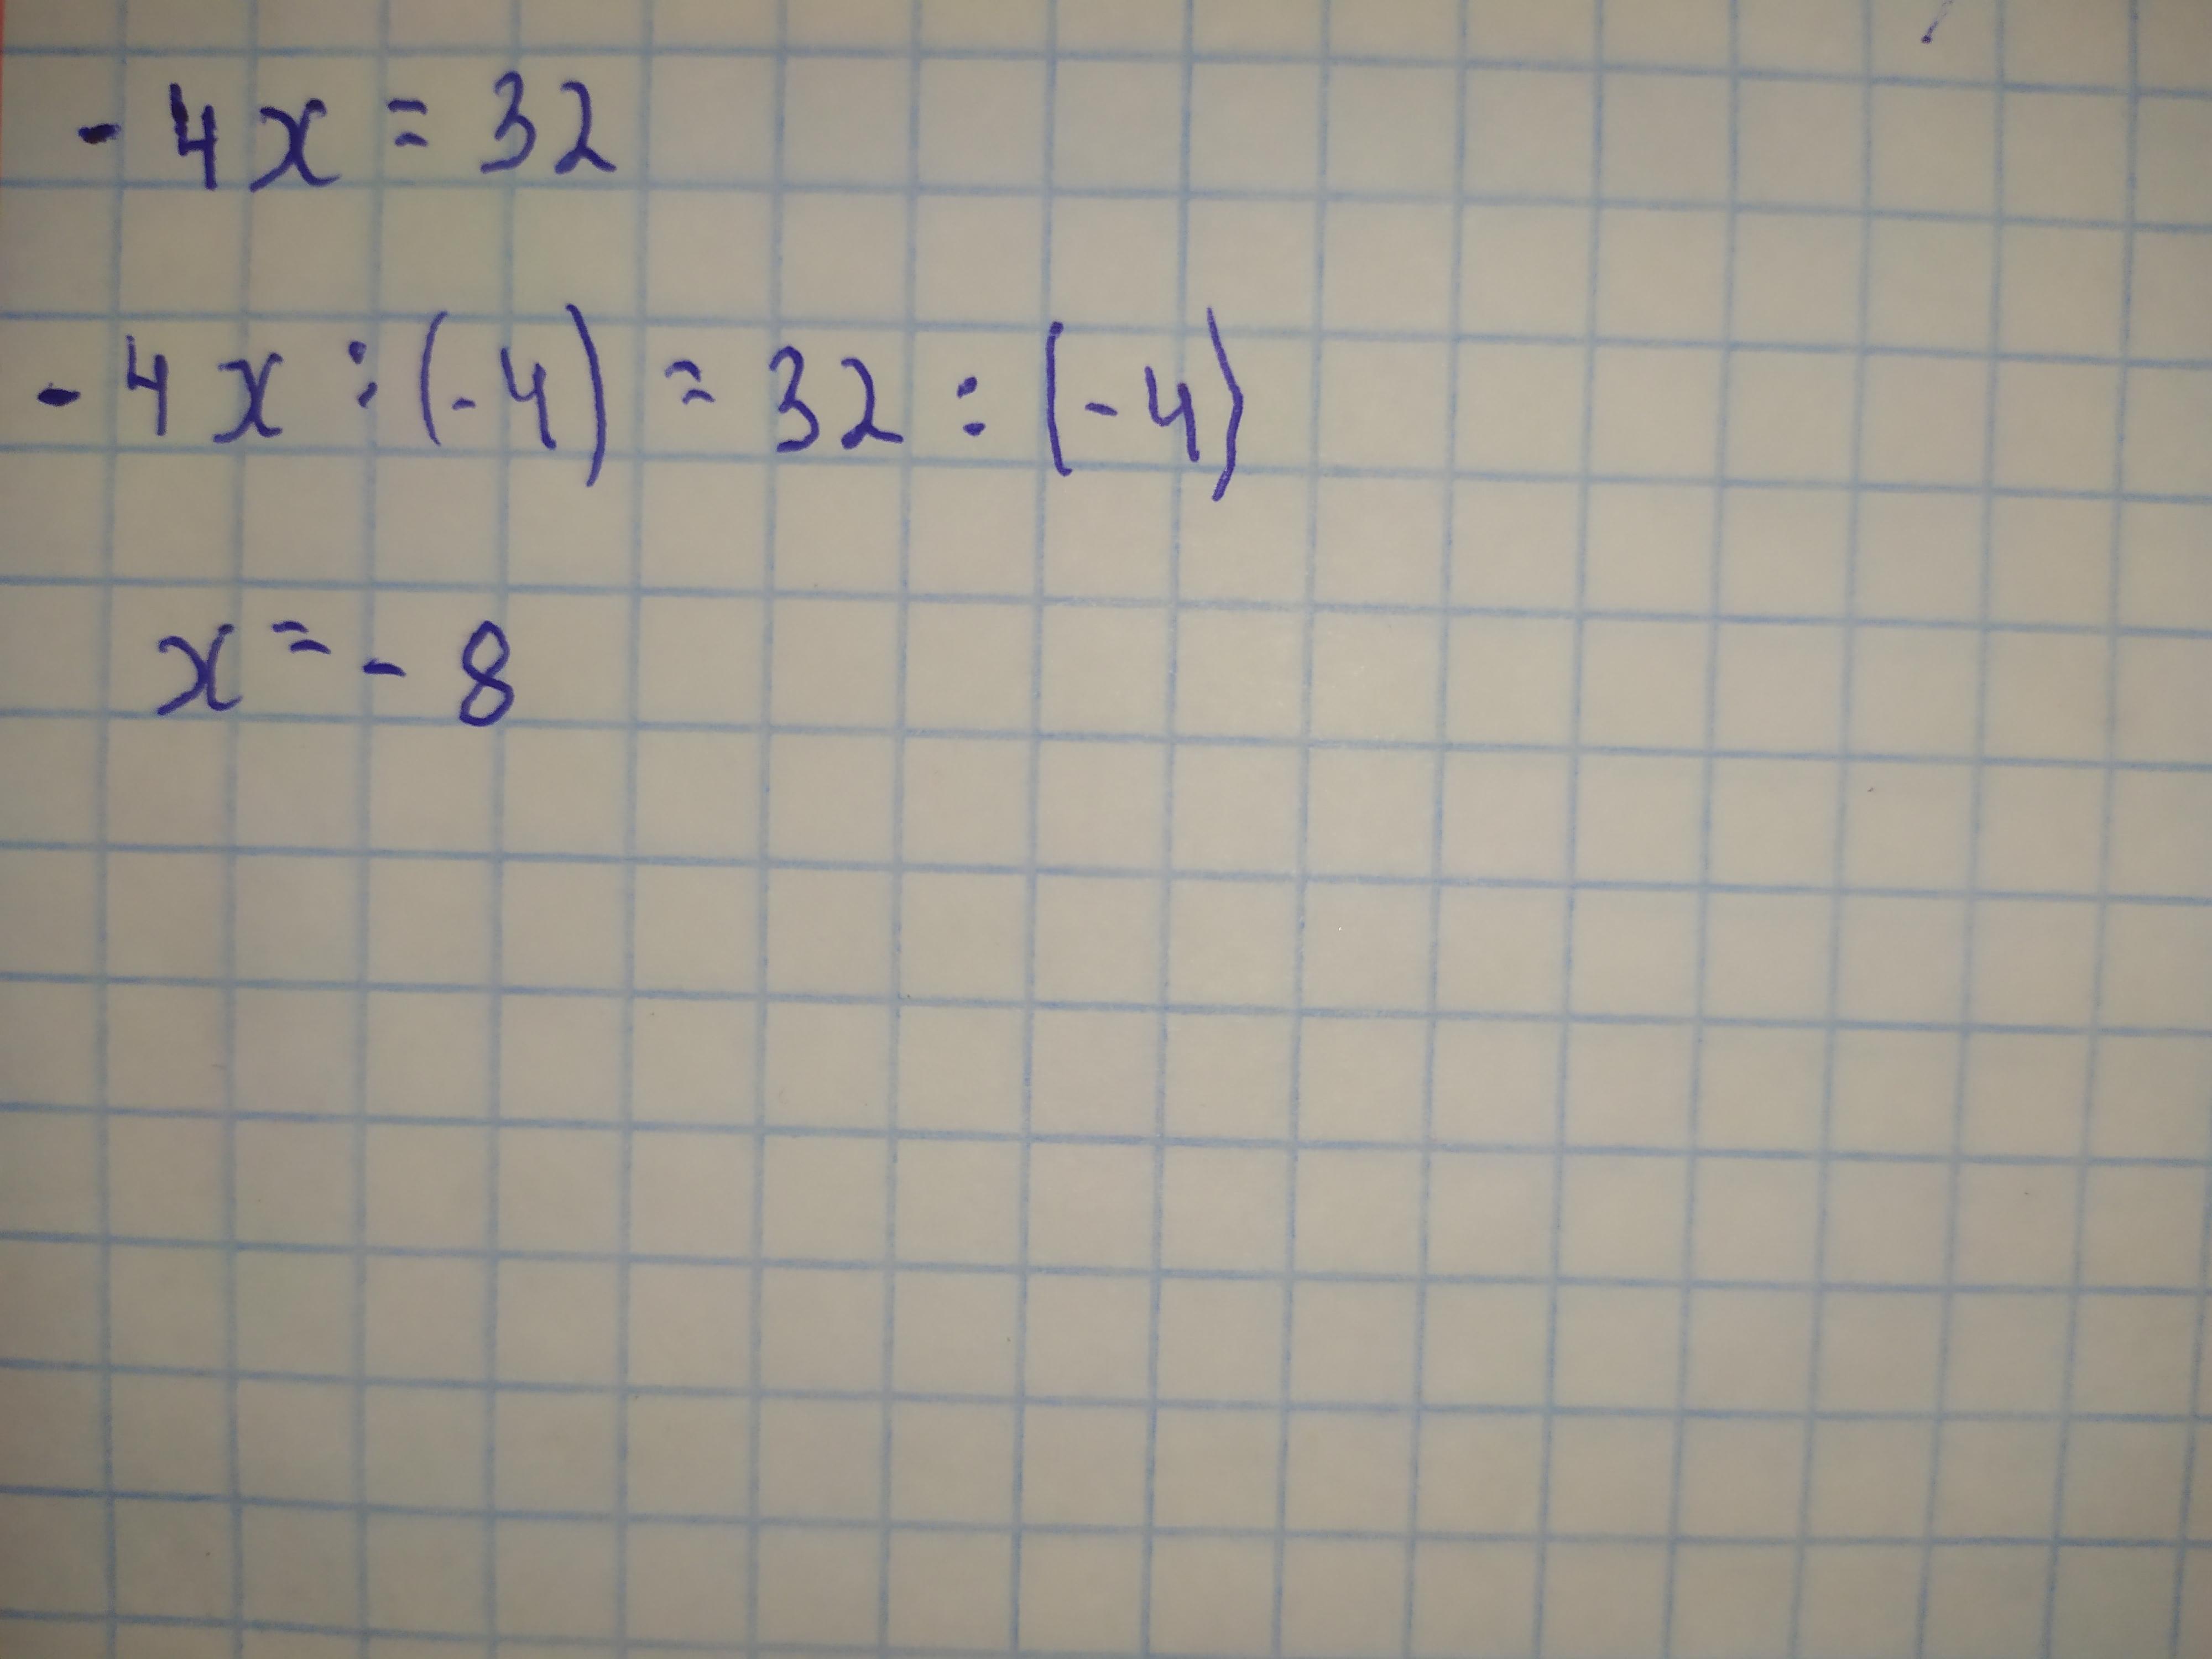 - 4x = 32
- 4x : (-4) = 32 : (-4)
x = - 8